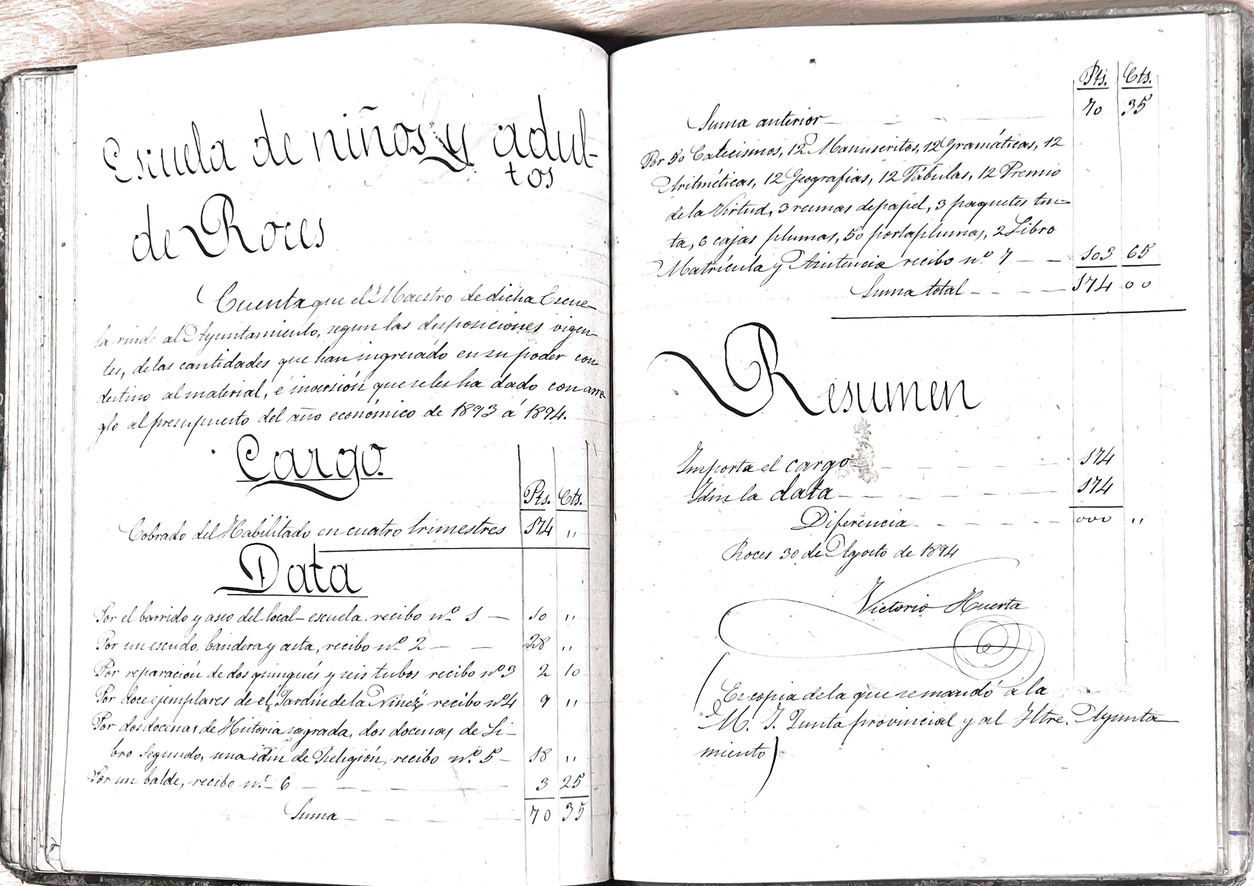 Escuela de niños y adul-
tos
de Roces
Cuenta que el Maestro de dicha Escue-
la rinde al Ayuntamiento, segun las disposiciones vigen-
tes, de las cantidades que han ingresado en su poder con
destino al material, e inversión que se les ha dado con arre-
glo al presupuesto del año económico de 1893 á 1894.
Cargo
Pts. Cts.
Cobrado del Habilitado en cuatro trimestres 174 "
Data
Por el barrido y aseo del local-escuela, recibo nº 1 — 10 "
Por un escudo, bandera y asta, recibo nº 2 — — 28 "
Por reparación de dos quinqués y seis tubos recibo nº 3 2 10
Por doce ejemplares de el "Jardín de la Niñez" recibo nº 4 9 "
Por dos docenas de Historia sagrada, dos docenas de Li-
bro segundo, una idm de Religión, recibo nº 5 — 18 "
Por un balde, recibo nº 6 — — — 3 25
Suma — — — 70 35
Pts. Cts.
Suma anterior — — — 70 35
Por 50 Catecismos, 12 Manuscritos, 12 Gramáticas, 12
Aritméticas, 12 Geografias, 12 Fábulas, 12 Premio
de la Virtud, 3 resmas de papel, 3 paquetes tin-
ta, 6 cajas plumas, 50 portaplumas, 2 Libro
Matrícula y Asistencia recibo nº 7 — — 103 65
Suma total — — — 174 00
Resumen
Importa el cargo — — — 174
Idm la data — — — 174
Diferencia — — — 000 "
Roces 30 de Agosto de 1894
Victorio Huerta
(Es copia de la que se mandó a la
M. I. Junta provincial y al Iltre. Ayunta-
miento)